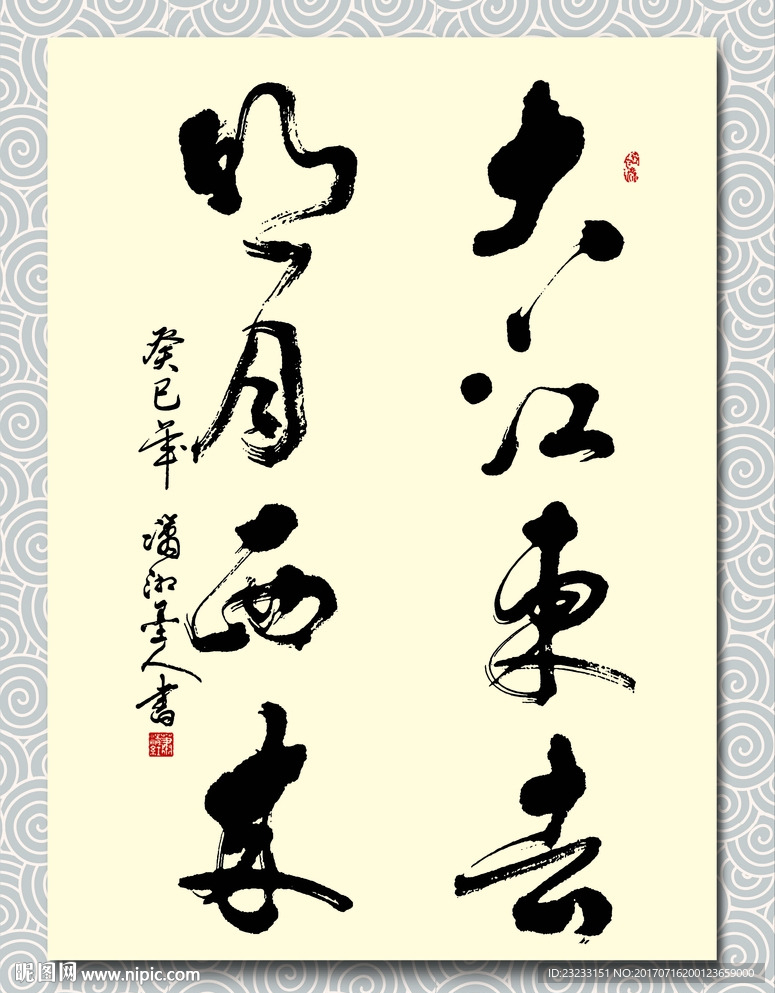 大江东去
明月西来
癸巳年 潇湘墨人书
昵图网 www.nipic.com
ID:23233151 NO:20170716200123659000